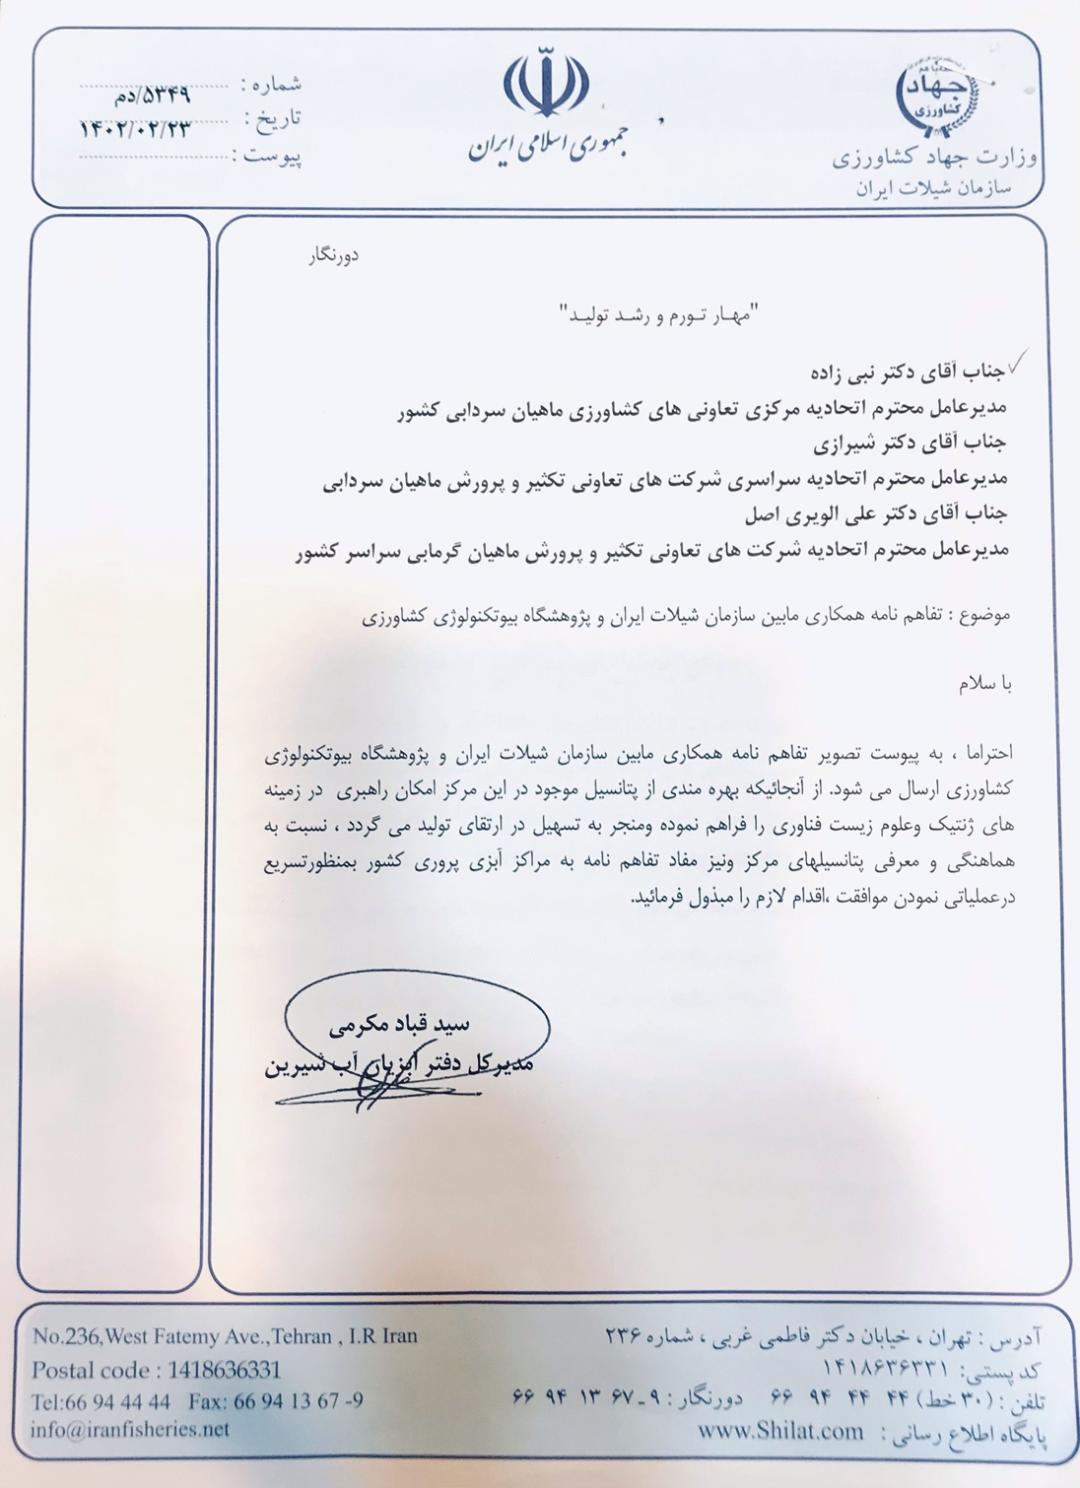 جهاد
کشاورزی
وزارت جهاد کشاورزی
سازمان شیلات ایران
جمهوری اسلامی ایران
شماره : ۵۳۴۹/دم
تاریخ : ۱۴۰۲/۰۲/۲۳
پیوست :
دورنگار
"مهـار تـورم و رشـد تولیـد"
جناب آقای دکتر نبی زاده
مدیرعامل محترم اتحادیه مرکزی تعاونی های کشاورزی ماهیان سردابی کشور
جناب آقای دکتر شیرازی
مدیرعامل محترم اتحادیه سراسری شرکت های تعاونی تکثیر و پرورش ماهیان سردابی
جناب آقای دکتر علی الویری اصل
مدیرعامل محترم اتحادیه شرکت های تعاونی تکثیر و پرورش ماهیان گرمابی سراسر کشور
موضوع : تفاهم نامه همکاری مابین سازمان شیلات ایران و پژوهشگاه بیوتکنولوژی کشاورزی
با سلام
احتراما ، به پیوست تصویر تفاهم نامه همکاری مابین سازمان شیلات ایران و پژوهشگاه بیوتکنولوژی
کشاورزی ارسال می شود. از آنجائیکه بهره مندی از پتانسیل موجود در این مرکز امکان راهبری در زمینه
های ژنتیک وعلوم زیست فناوری را فراهم نموده ومنجر به تسهیل در ارتقای تولید می گردد ، نسبت به
هماهنگی و معرفی پتانسیلهای مرکز ونیز مفاد تفاهم نامه به مراکز آبزی پروری کشور بمنظورتسریع
درعملیاتی نمودن موافقت ،اقدام لازم را مبذول فرمائید.
سید قباد مکرمی
مدیرکل دفتر آبزیان آب شیرین
آدرس : تهران ، خیابان دکتر فاطمی غربی ، شماره ۲۳۶
کد پستی: ۱۴۱۸۶۳۶۳۳۱
تلفن : (۳۰ خط) ۴۴ ۴۴ ۹۴ ۶۶ دورنگار : ۹ـ ۶۷ ۱۳ ۹۴ ۶۶
پایگاه اطلاع رسانی : www.Shilat.com
No.236,West Fatemy Ave.,Tehran , I.R Iran
Postal code : 1418636331
Tel:66 94 44 44 Fax: 66 94 13 67 -9
info@iranfisheries.net